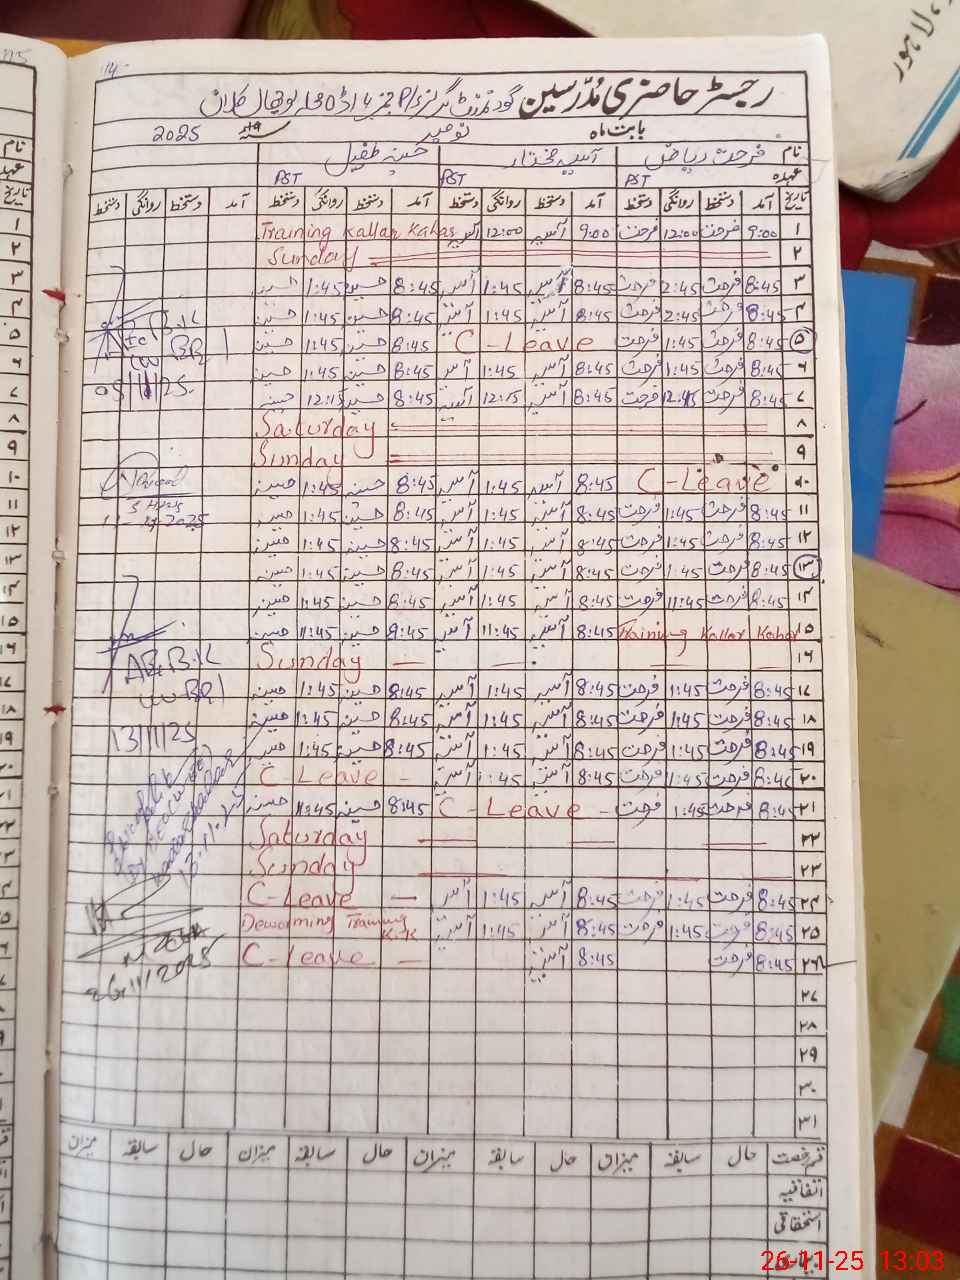 14
رجسٹر حاضری مدرسین گورنمنٹ گرلز
بابت ماہ نومبر سنہ ۱۹ء 2025
نام فرحت ریاض آسیہ مختار حسینہ طفیل
عہدہ PST PST PST
تاریخ آمد دستخط روانگی دستخط آمد دستخط روانگی دستخط آمد دستخط روانگی دستخط آمد دستخط روانگی دستخط
۱ 9:00 فرحت 12:00 فرحت 9:00 آسیہ 12:00 آسیہ Training Kallar Kahar
۲ Sunday
۳ 8:45 فرحت 2:45 فرحت 8:45 آسیہ 1:45 آسیہ 8:45 حسینہ 1:45 حسینہ
۴ 8:45 فرحت 2:45 فرحت 8:45 آسیہ 1:45 آسیہ 8:45 حسینہ 1:45 حسینہ
۵ 8:45 فرحت 1:45 فرحت C-Leave 8:45 حسینہ 1:45 حسینہ
۶ 8:45 فرحت 1:45 فرحت 8:45 آسیہ 1:45 آسیہ 8:45 حسینہ 1:45 حسینہ
05/11/25
۷ 8:45 فرحت 12:45 فرحت 8:45 آسیہ 12:15 آسیہ 8:45 حسینہ 12:15 حسینہ
۸ Saturday
۹ Sunday
۱۰ C-Leave 8:45 آسیہ 1:45 آسیہ 8:45 حسینہ 1:45 حسینہ
۱۱ 8:45 فرحت 1:45 فرحت 8:45 آسیہ 1:45 آسیہ 8:45 حسینہ 1:45 حسینہ
۱۲ 8:45 فرحت 1:45 فرحت 8:45 آسیہ 1:45 آسیہ 8:45 حسینہ 1:45 حسینہ
۱۳ 8:45 فرحت 1:45 فرحت 8:45 آسیہ 1:45 آسیہ 8:45 حسینہ 1:45 حسینہ
۱۴ 8:45 فرحت 11:45 فرحت 8:45 آسیہ 1:45 آسیہ 8:45 حسینہ 1:45 حسینہ
۱۵ Training Kallar Kahar 8:45 آسیہ 11:45 آسیہ 8:45 حسینہ 11:45 حسینہ
۱۶ Sunday
۱۷ 8:45 فرحت 1:45 فرحت 8:45 آسیہ 1:45 آسیہ 8:45 حسینہ 1:45 حسینہ
۱۸ 8:45 فرحت 1:45 فرحت 8:45 آسیہ 1:45 آسیہ 8:45 حسینہ 1:45 حسینہ
13/11/25
۱۹ 8:45 فرحت 1:45 فرحت 8:45 آسیہ 1:45 آسیہ 8:45 حسینہ 1:45 حسینہ
۲۰ 8:45 فرحت 1:45 فرحت 8:45 آسیہ 1:45 آسیہ C-Leave
۲۱ 8:45 فرحت 1:45 فرحت C-Leave 8:45 حسینہ 11:45 حسینہ
۲۲ Saturday
۲۳ Sunday
13.11.25
۲۴ 8:45 فرحت 1:45 فرحت 8:45 آسیہ 1:45 آسیہ C-Leave
۲۵ 8:45 فرحت 1:45 فرحت 8:45 آسیہ 1:45 آسیہ Deworming Training K.K
۲۶ 8:45 فرحت 8:45 آسیہ C-Leave
26/11/2025
۲۷
۲۸
۲۹
۳۰
۳۱
قسم رخصت حال سابقہ میزان حال سابقہ میزان حال سابقہ میزان حال سابقہ میزان
اتفاقیہ
استحقاقی
بیماری
26-11-25 13:03